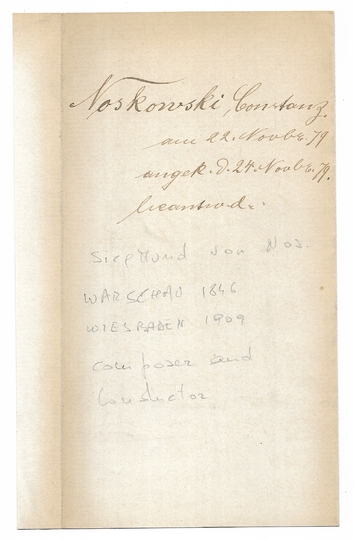 Noskowski, Constanz.
am 22. Novbr. 79
angek. d. 24. Novbr. 79.
beantwd.
Siegmund von Nos.
WARSCHAU 1846
WIESBADEN 1909
composer and
conductor